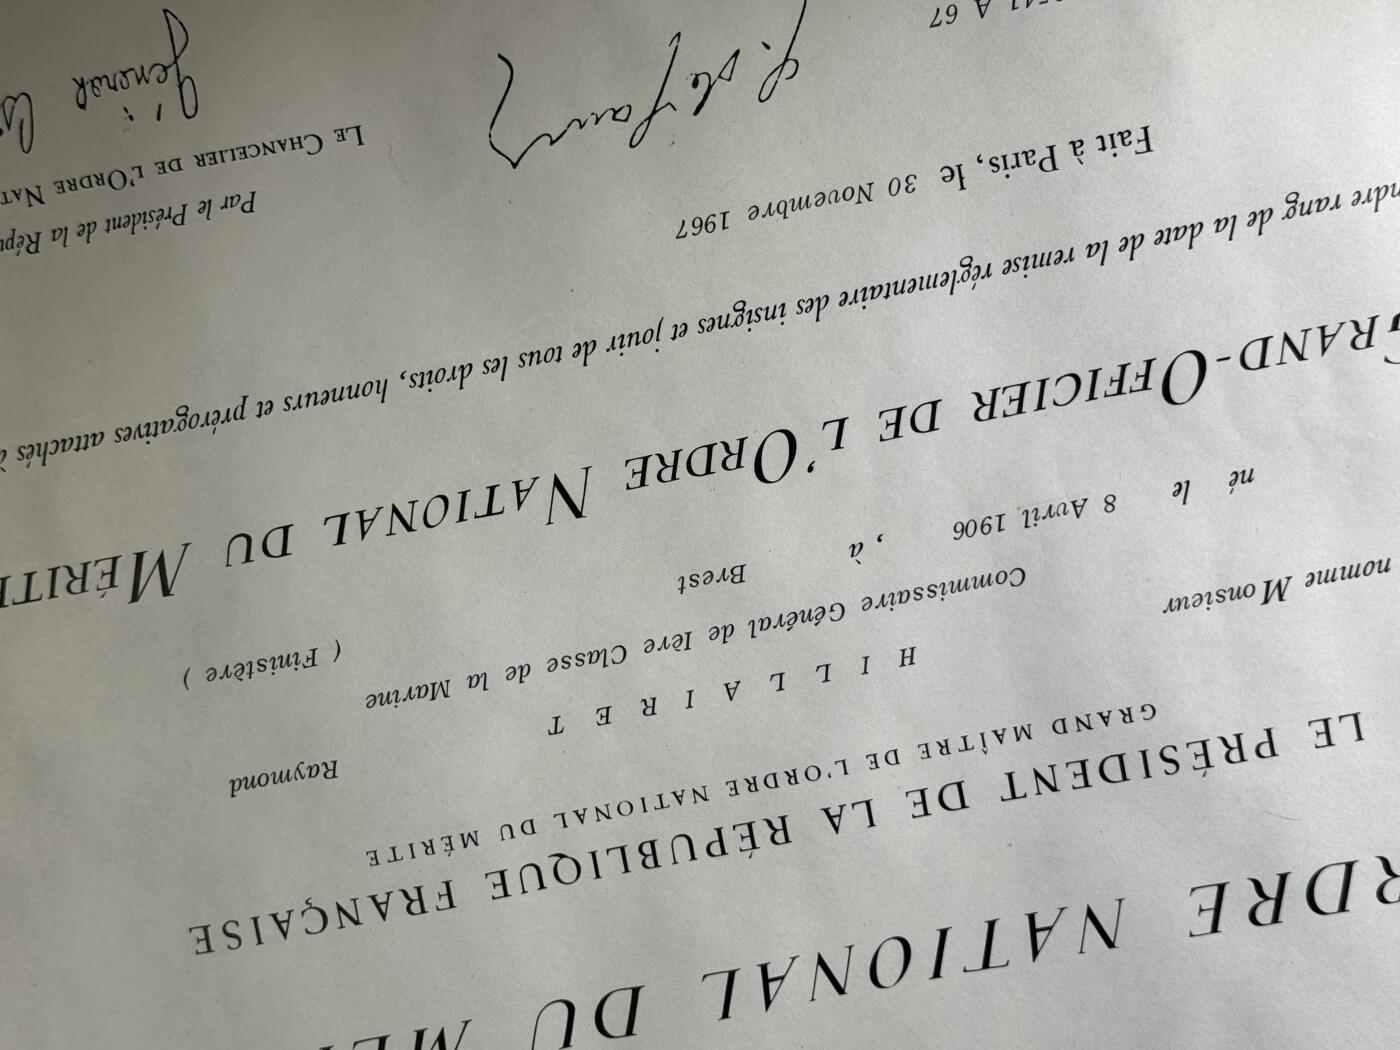 RDRE NATIONAL DU MÉ
LE PRÉSIDENT DE LA RÉPUBLIQUE FRANÇAISE
GRAND MAÎTRE DE L'ORDRE NATIONAL DU MÉRITE
nomme Monsieur HILLAIRET Raymond
Commissaire Général de Ière Classe de la Marine
né le 8 Avril 1906 , à Brest ( Finistère )
GRAND-OFFICIER DE L'ORDRE NATIONAL DU MÉRITE
ndre rang de la date de la remise réglementaire des insignes et jouir de tous les droits, honneurs et prérogatives attachés à
Fait à Paris, le 30 Novembre 1967
Par le Président de la Répu
LE CHANCELIER DE L'ORDRE NAT
A 67
Général